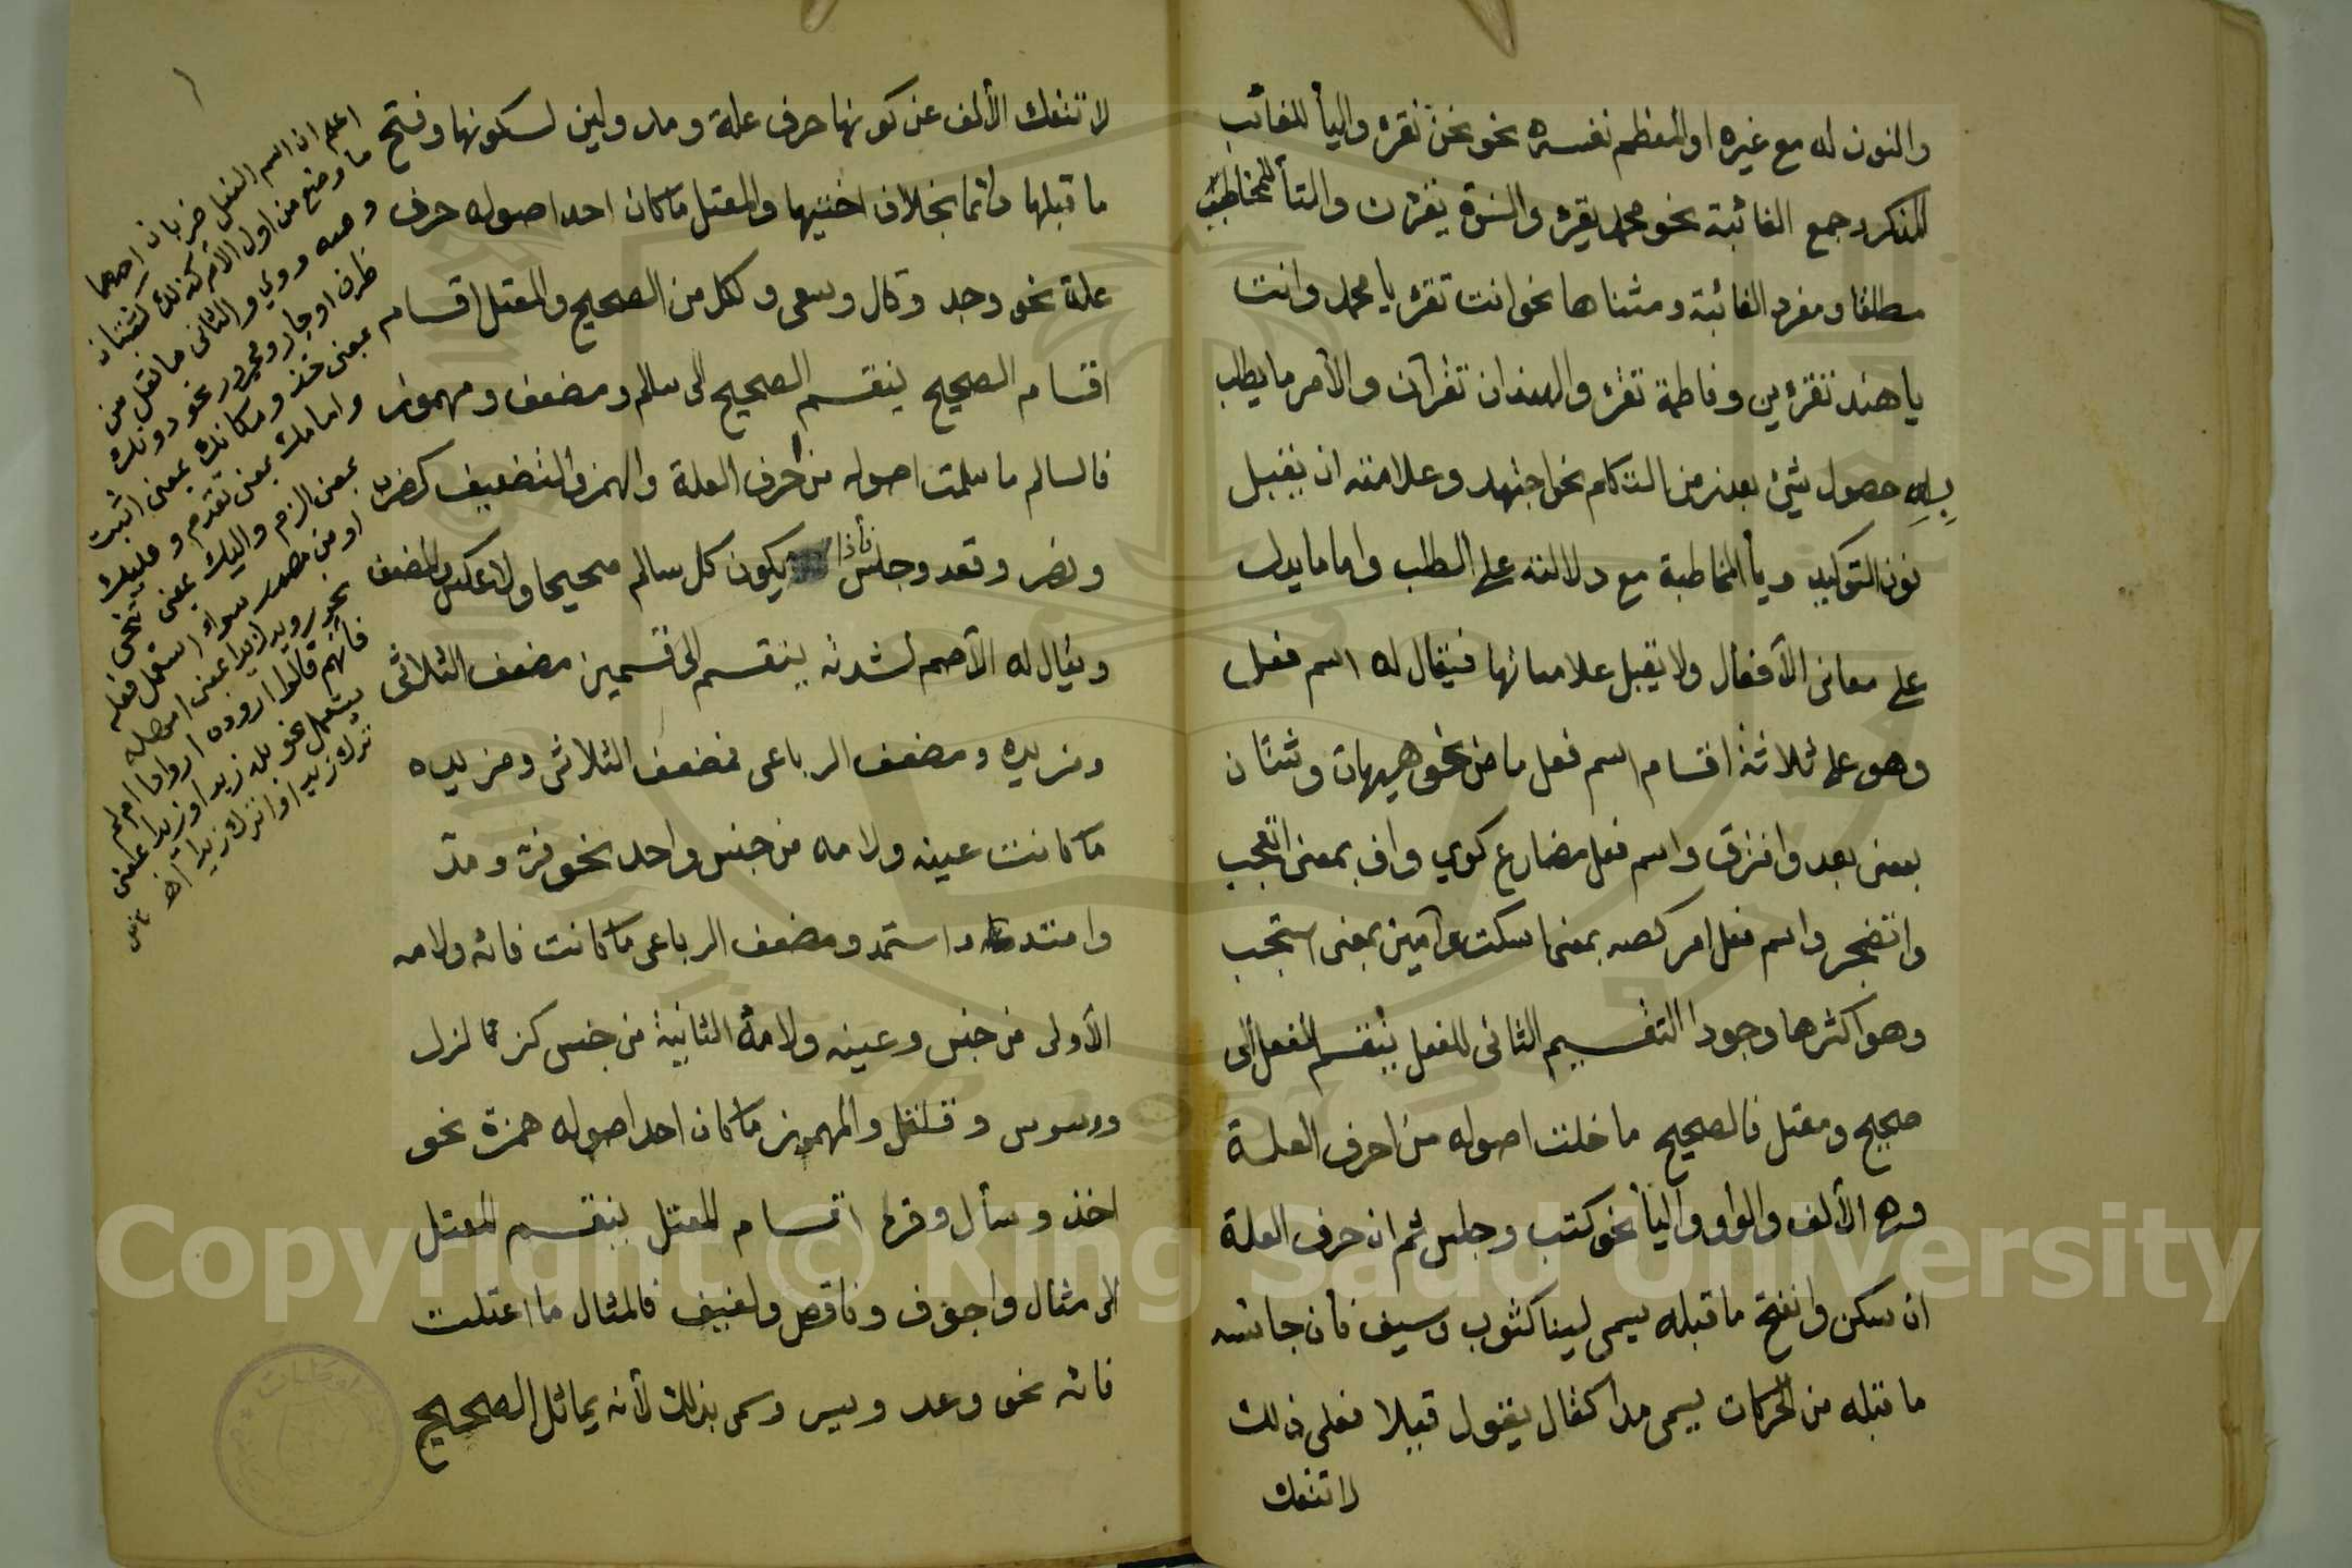 والنون له مع غيره او المعظم نفسه نحو نحن نقرؤ واليأ للغائب
المذكر وجمع الغائبة نحو محمد يقرؤ والنسوة يقرئن والتأ للمخاطب
مطلقا ومفرد الغائبة ومثناها نحو انت تقرؤ يا محمد وانت
يا هند تقرئين وفاطمة تقرؤ والهندان تقرآن والأمر ما يطلب
به حصول شيئ بعد زمن التكلم نحو اجتهد وعلامته ان يقبل
نون التوكيد ويأ المخاطبة مع دلالته على الطلب واما ما يدل
على معانى الأفعال ولا يقبل علاماتها فيقال له اسم فعل
وهو على ثلاثة اقسام اسم فعل ماض نحو هيهات وشتان
بمعنى بعد وافترق واسم فعل مضارع كوي واف بمعنى اتعجب
واتضجر واسم فعل امر كصه بمعنى اسكت وآمين بمعنى استجب
وهو اكثرها وجودا التقسيم الثانى للفعل ينقسم الفعل الى
صحيح ومعتل فالصحيح ما خلت اصوله من احرف العلة
وهى الألف والواو واليأ نحو كتب وجلس ثم ان حرف العلة
ان سكن وانفتح ما قبله يسمى لينا كثوب وسيف فأن جانسه
ما قبله من الحركات يسمى مدا كقال يقول قيلا فعلى ذلك
لا تنفك
لا تنفك الألف عن كونها حرف علة ومد ولين لسكونها وفتح
ما قبلها دائما بخلاف اختيها والمعتل ما كان احد اصوله حرف
علة نحو وجد وقال وسعى وكل من الصحيح والمعتل اقسام
اقسام الصحيح ينقسم الصحيح الى سالم ومضعف ومهموز
فالسالم ما سلمت اصوله من احرف العلة والهمز والتضعيف كضرب
ونصر وقعد وجلس فأذا يكون كل سالم صحيحا ولا عكس والمضعف
ويقال له الأصم لشدته ينقسم الى قسمين مضعف الثلاثى
ومزيده ومضعف الرباعى فمضعف الثلاثى ومزيده
ما كانت عينه ولامه من جنس واحد نحو فر ومد
وامتد واستمد ومضعف الرباعى ما كانت فائه ولامه
الأولى من جنس وعينه ولامه الثانية من جنس كزلزل
ووسوس وقلقل والمهموز ما كان احد اصوله همزة نحو
اخذ وسأل وقرء اقسام المعتل ينقسم المعتل
الى مثال واجوف وناقص ولفيف فالمثال ما اعتلت
فائه نحو وعد ويسر وسمى بذلك لأنه يماثل الصحيح
اعلم ان اسم الفعل ضربان احدهما
ما وضع من اول الأمر كذلك كشتان
وصه ووي والثانى ما نقل من
ظرف او جار ومجرور نحو دونك
بمعنى خذ ومكانك بمعنى اثبت
وامامك بمعنى تقدم وعليك
بمعنى الزم واليك بمعنى تنحى
او من مصدر سواء استعمل فعله
نحو رويد زيدا بمعنى امهله
فأنهم قالوا ارودہ اروادا ام لم
يستعمل نحو بله زيد او زيدا بمعنى
ترك زيد او اترك زيدا اه
Copyright © King Saud University